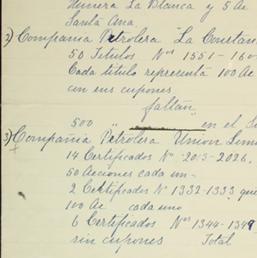 Minera La Blanca y 5 Ac
Santa Ana
2) Compania Petrolera "La Constan
50 Titulos Nos 1551-160
Cada titulo representa 100 Ac
con sus cupones
faltan
500 " en el
3) Compañia Petrolera Union
14 Certificados Nos 2013-2026.
50 Acciones cada un-
2 Certificados No 1332-1333 que
100 Ac cada uno
6 Certificados Nos 1344-1349
sin cupones Total